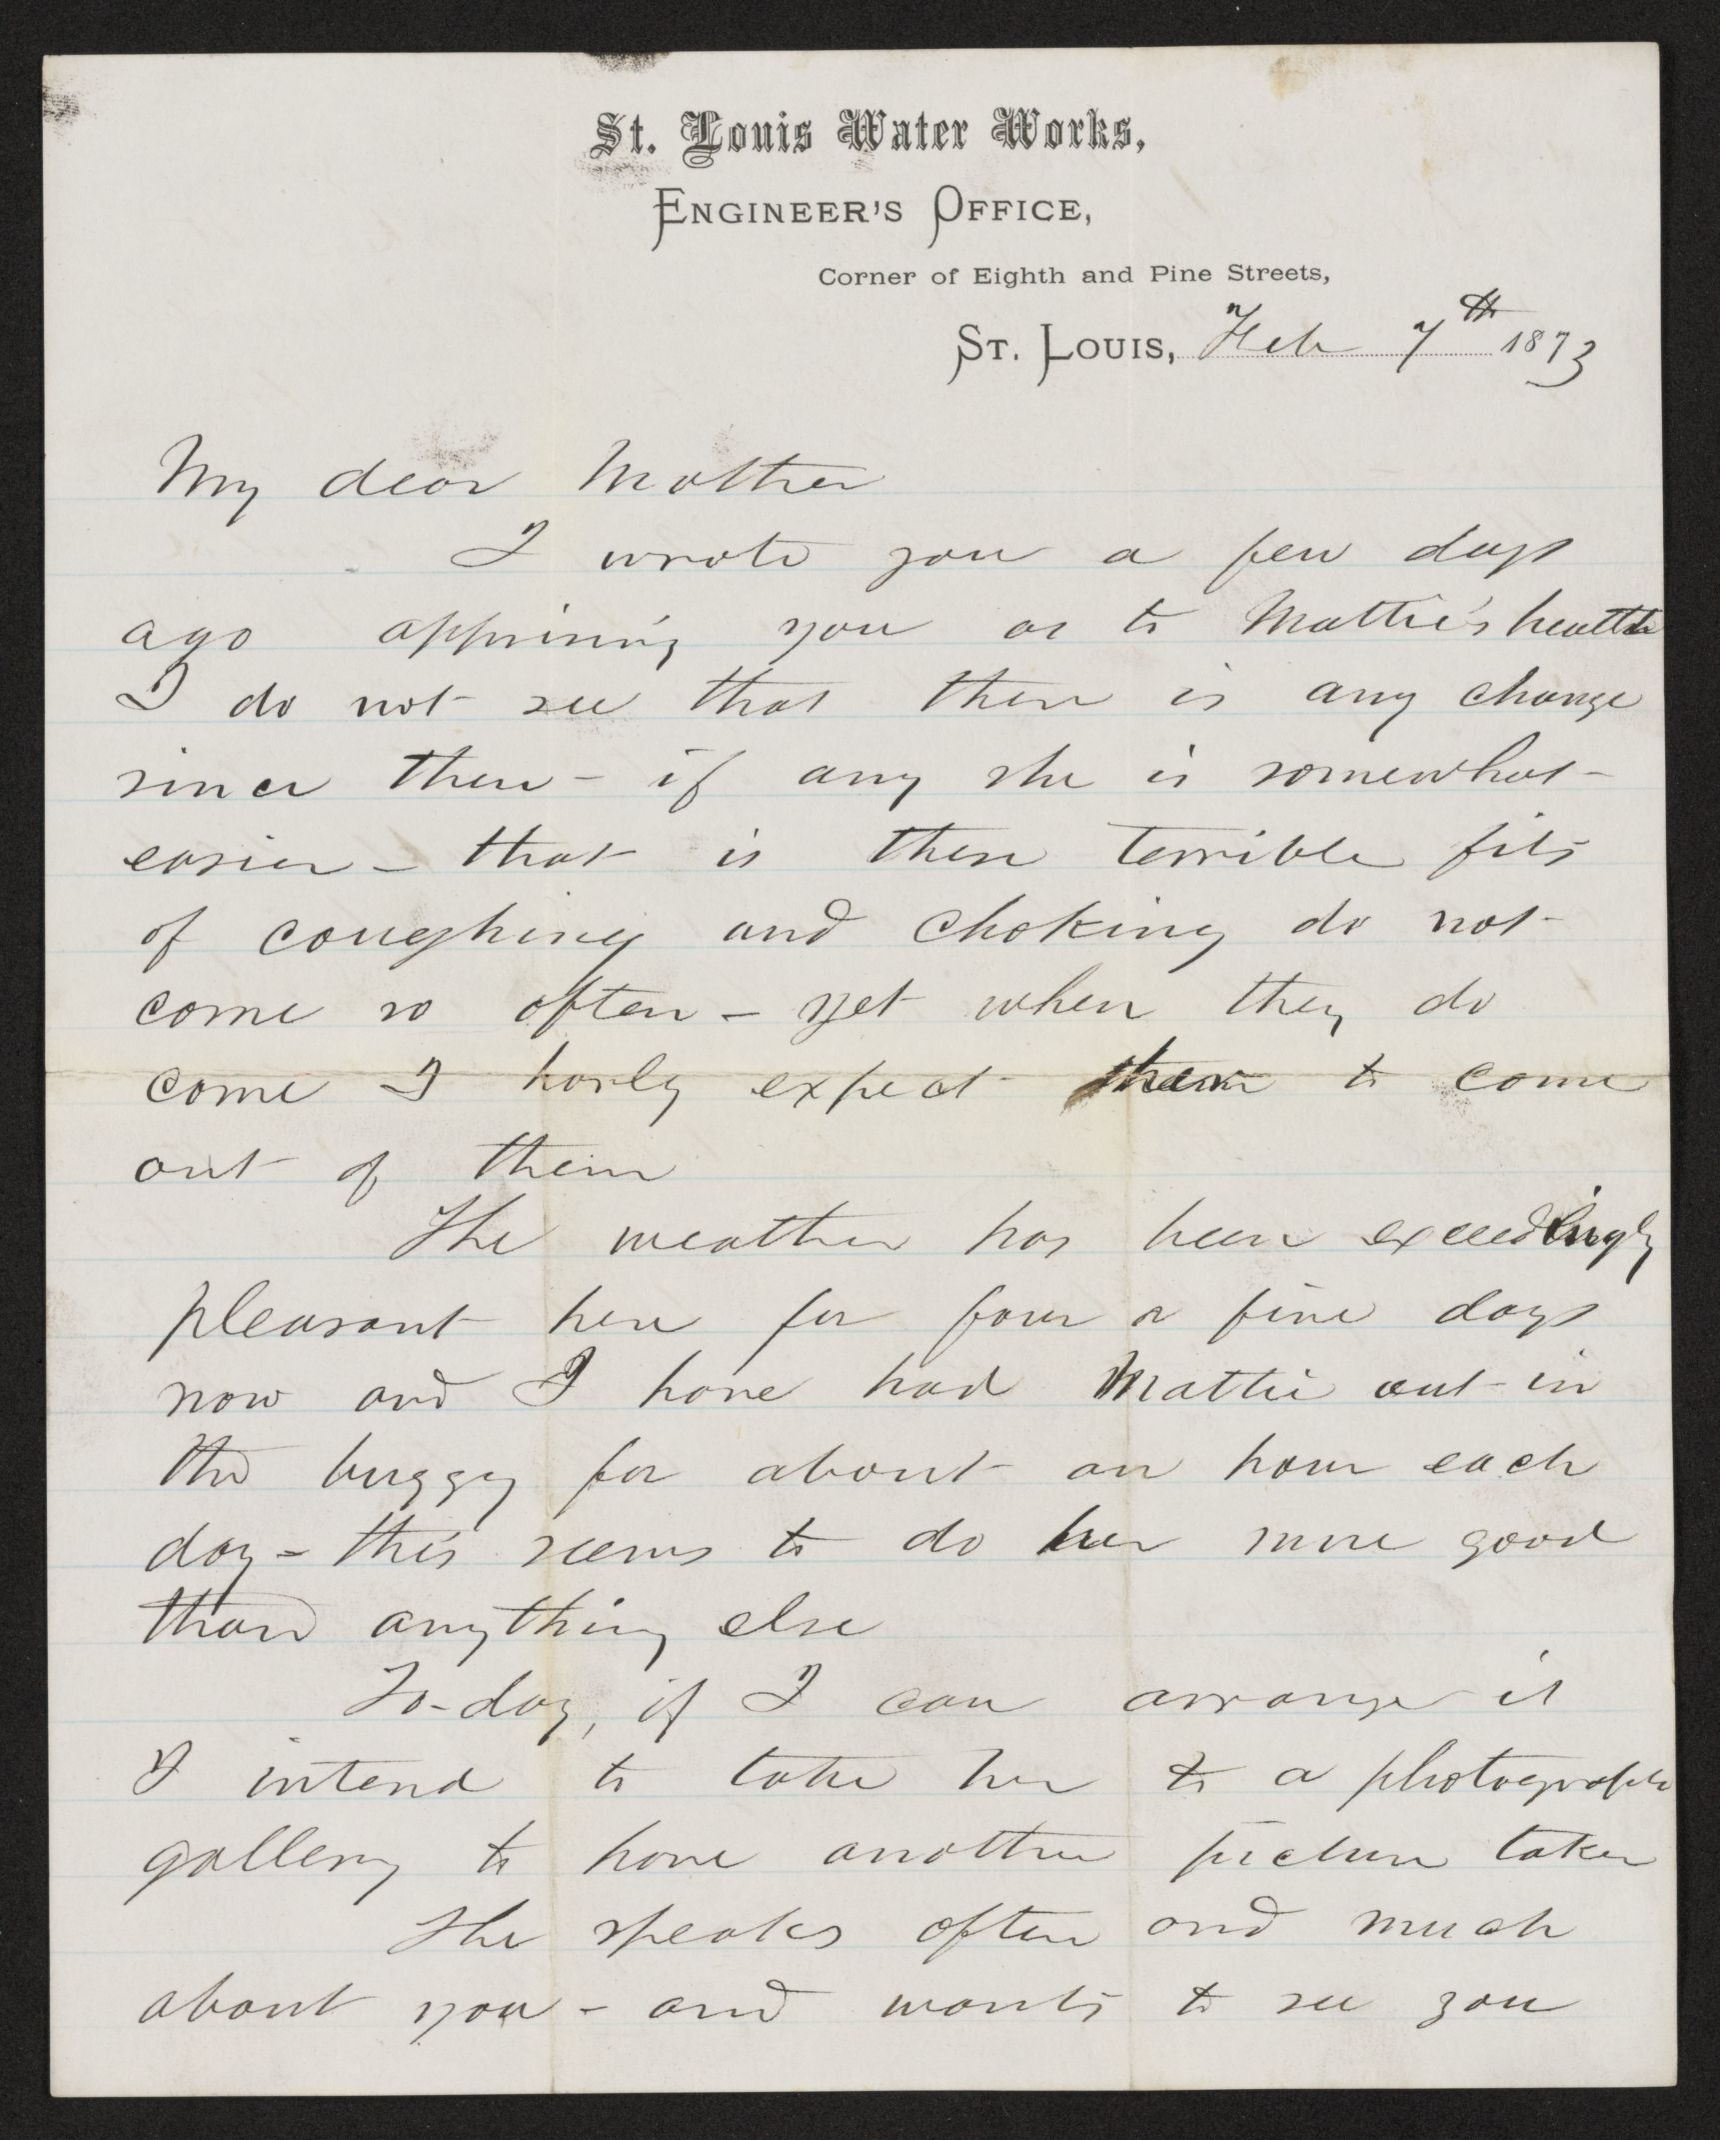 St. Louis Water Works,
Engineer's Office,
Corner of Eighth and Pine Streets,
St. Louis, Feb 7th 1873
My dear Mother
I wrote you a few days
ago apprising you as to Mattie's health
I do not see that there is any change
since then - if any she is somewhat
easier - that is these terrible fits
of coughing and choking do not
come so often - yet when they do
come I harly expect them to come
out of them
The weather has been exceedingly
pleasant here for four or five days
now and I have had Mattie out in
the buggy for about an hour each
day - this seems to do her more good
than anything else
To-day, if I can arrange it
I intend to take her to a photograph
gallery to have another picture taken
She speaks often and much
about you - and wants to see you